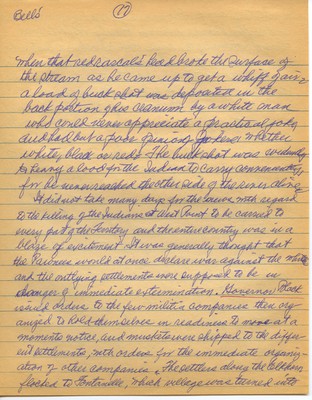 Bell's
(17)
when that red rascal's head broke the surface of
the stream as he came up to get a whiff of air
a load of buck shot was deposited in the
back portion of his cranium by a white man
who could never appreciate a practical joke
and had but a poor opinion of jokers whether
white, black or red. The buckshot was evidently
to heavy a load for the Indian to carry comfortably
for he never reached the other side of the river alive
It did not take many days for the news with regard
to the killing of the Indians at West Point to be carried to
every part of the Territory and the entire country was in a
blaze of excitement. It was generally thought that
the Pawnees would at once declare war against the whites
and the outlying settlements were supposed to be in
danger of immediate extermination. Governor Black
issued orders to the few militia companies then org
anized to hold themselves in readiness to move at a
moments notice, and muskets were shipped to the differ
ent settlements with orders for the immediate organiz-
ation of other companies. The settlers along the Elkhorn
flocked to Fontanelle, which village was turned into